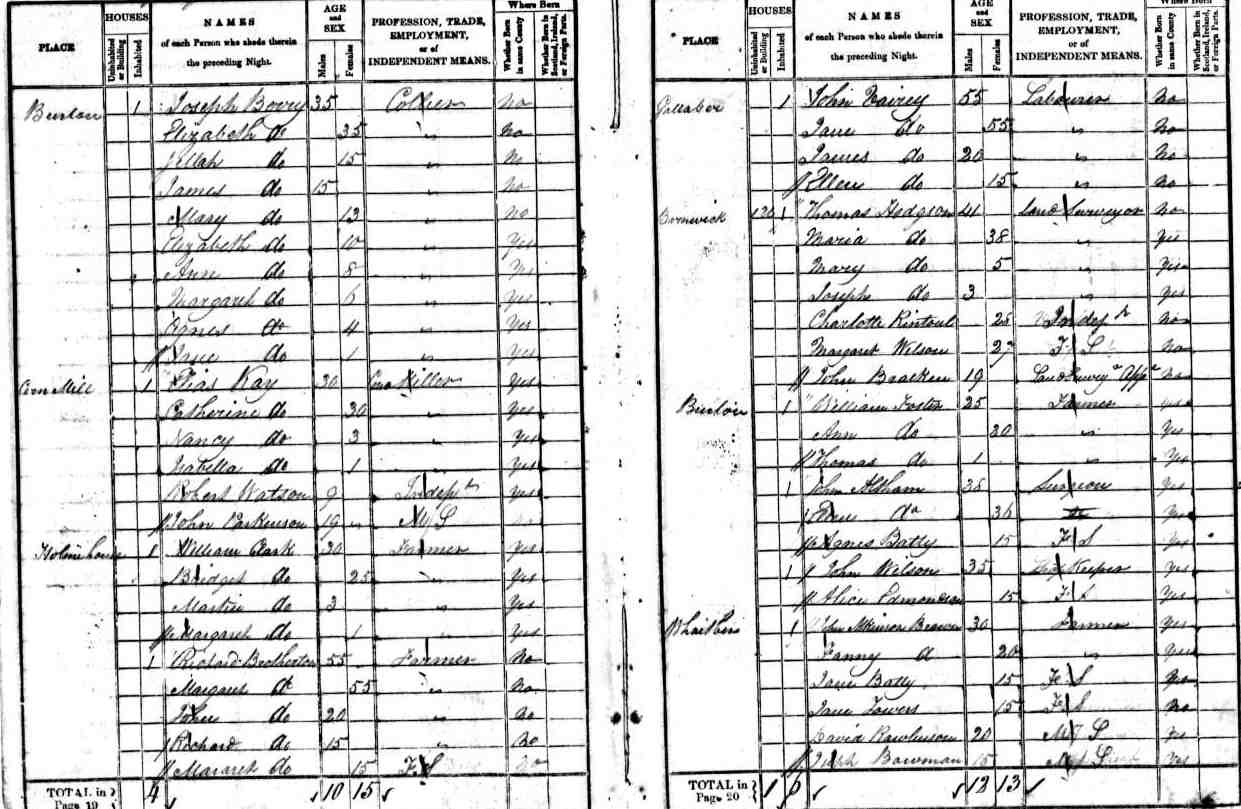 PLACE HOUSES Uninhabited or Building Inhabited NAMES of each Person who abode therein the preceding Night. AGE and SEX Males Females PROFESSION, TRADE, EMPLOYMENT, or of INDEPENDENT MEANS. Where Born Whether Born in same County Whether Born in Scotland, Ireland, or Foreign Parts.
Burton 1 Joseph Bovey 35 Collier No
Elizabeth do 35 " No
do 15 " No
James do 15 " No
Mary do 13 " No
Elizabeth do 10 " Yes
Ann do 8 " Yes
Margaret do 6 " Yes
Agnes do 4 " Yes
Jane do 1 " Yes
Corn Mill 1 Elias Kay 30 Corn Miller Yes
Catherine do 30 " Yes
Nancy do 3 " Yes
Isabella do 1 " Yes
Robert Watson 9 Indept Yes
John Parkinson 19 " M S
Holme house 1 William Clark 30 Farmer Yes
Bridget do 25 " Yes
Martin do 3 " Yes
Margaret do 1 " Yes
1 Richard Brotherton 55 Farmer No
Margaret do 55 " No
John do 20 " No
Richard do 15 " No
Margaret do 15 F S No
TOTAL in Page 19 4 10 15
PLACE HOUSES Uninhabited or Building Inhabited NAMES of each Person who abode therein the preceding Night. AGE and SEX Males Females PROFESSION, TRADE, EMPLOYMENT, or of INDEPENDENT MEANS. Where Born Whether Born in same County Whether Born in Scotland, Ireland, or Foreign Parts.
Gallaber 1 John Labourer 55 No
Jane do 55 " No
James do 20 " No
Ellen do 15 " No
1 Thomas Hodgson 41 Land Surveyor No
Maria do 38 " Yes
Mary do 5 " Yes
Joseph do 3 " Yes
Charlotte Rintoul 25 Indept No
Margaret Wilson 27 F S No
John Bracken 19 No
Burton 1 William Foster 25 Farmer Yes
Ann do 30 " Yes
Thomas do 1 " Yes
1 John Altham 35 Surgeon Yes
do 36 Yes
Agnes Batty 15 F S Yes
1 John Wilson 35 Keeper Yes
Alice Edmondson 15 F S Yes
1 John Atkinson 30 Farmer Yes
Fanny do 20 " Yes
Jane Batty 15 F S Yes
Jane Towers 15 F S No
David Rawlinson 20 M S Yes
Joseph Bowman 15 Yes
TOTAL in Page 20 1 6 12 13